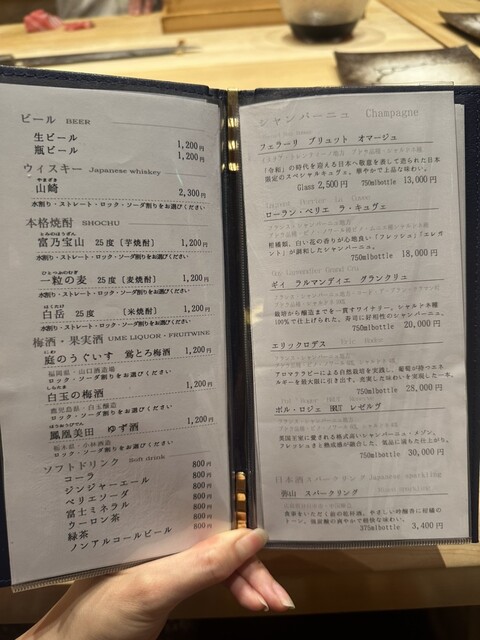 ビール BEER
生ビール 1,200円
瓶ビール 1,200円
ウィスキー Japanese whiskey
やまざき
山崎 2,300円
水割り・ストレート・ロック・ソーダ割りをお選びください
本格焼酎 SHOCHU
とみのほうざん
富乃宝山 25度 〔芋焼酎〕 1,200円
水割り・ストレート・ロック・ソーダ割りをお選びください
ひとつぶのむぎ
一粒の麦 25度 〔麦焼酎〕 1,200円
水割り・ストレート・ロック・ソーダ割りをお選びください
はくたけ
白岳 25度 〔米焼酎〕 1,200円
水割り・ストレート・ロック・ソーダ割りをお選びください
梅酒・果実酒 UME LIQUOR・FRUITWINE
にわ
庭のうぐいす 鶯とろ梅酒 1,200円
福岡県・山口酒造場
ロック・ソーダ割りをお選びください
しらたま
白玉の梅酒 1,200円
鹿児島県・白玉醸造
ロック・ソーダ割りをお選びください
ほうおうびでん
鳳凰美田 ゆず酒 1,200円
栃木県・小林酒造
ロック・ソーダ割りをお選びください
ソフトドリンク Soft drink
コーラ 800円
ジンジャーエール 800円
ペリエソーダ 800円
富士ミネラル 800円
ウーロン茶 800円
緑茶 800円
ノンアルコールビール 800円
シャンパーニュ Champagne
フェラーリ ブリュット オマージュ
「令和」の時代を迎える日本へ敬意を表して造られた日本
限定のスペシャルキュヴェ。華やかで上品な味わい。
Glass 2,500円 750mlbottle 13,000円
ローラン・ペリエ ラ・キュヴェ
柑橘類、白い花の香りが心地良い「フレッシュ」「エレガ
ント」が調和したシャンパーニュ。
750mlbottle 18,000円
ギィ ラルマンディエ グランクリュ
栽培から醸造までを一貫すワイナリー。シャルドネ種
100％で仕上げられた、寿司に好相性のシャンパーニュ。
750mlbottle 20,000円
エリックロデス
アロマテラピーによる自然栽培を実践し、葡萄が持つエネ
ルギーを最大限に引き出す、充実した味わいを実現した一本。
750mlbottle 28,000円
ポル・ロジェ BRUT レゼルヴ
英国王室に愛される格式高いシャンパーニュ・メゾン。
フレッシュさと熟成感が融合した、気品に満ちた仕上がり。
750mlbottle 30,000円
日本酒スパークリング Japanese sparkling
勢山 スパークリング
食事をいただく前の乾杯酒、やさしい吟醸香に柑橘の
トーン。微炭酸の爽やかで軽快な味わい。
375mlbottle 3,400円